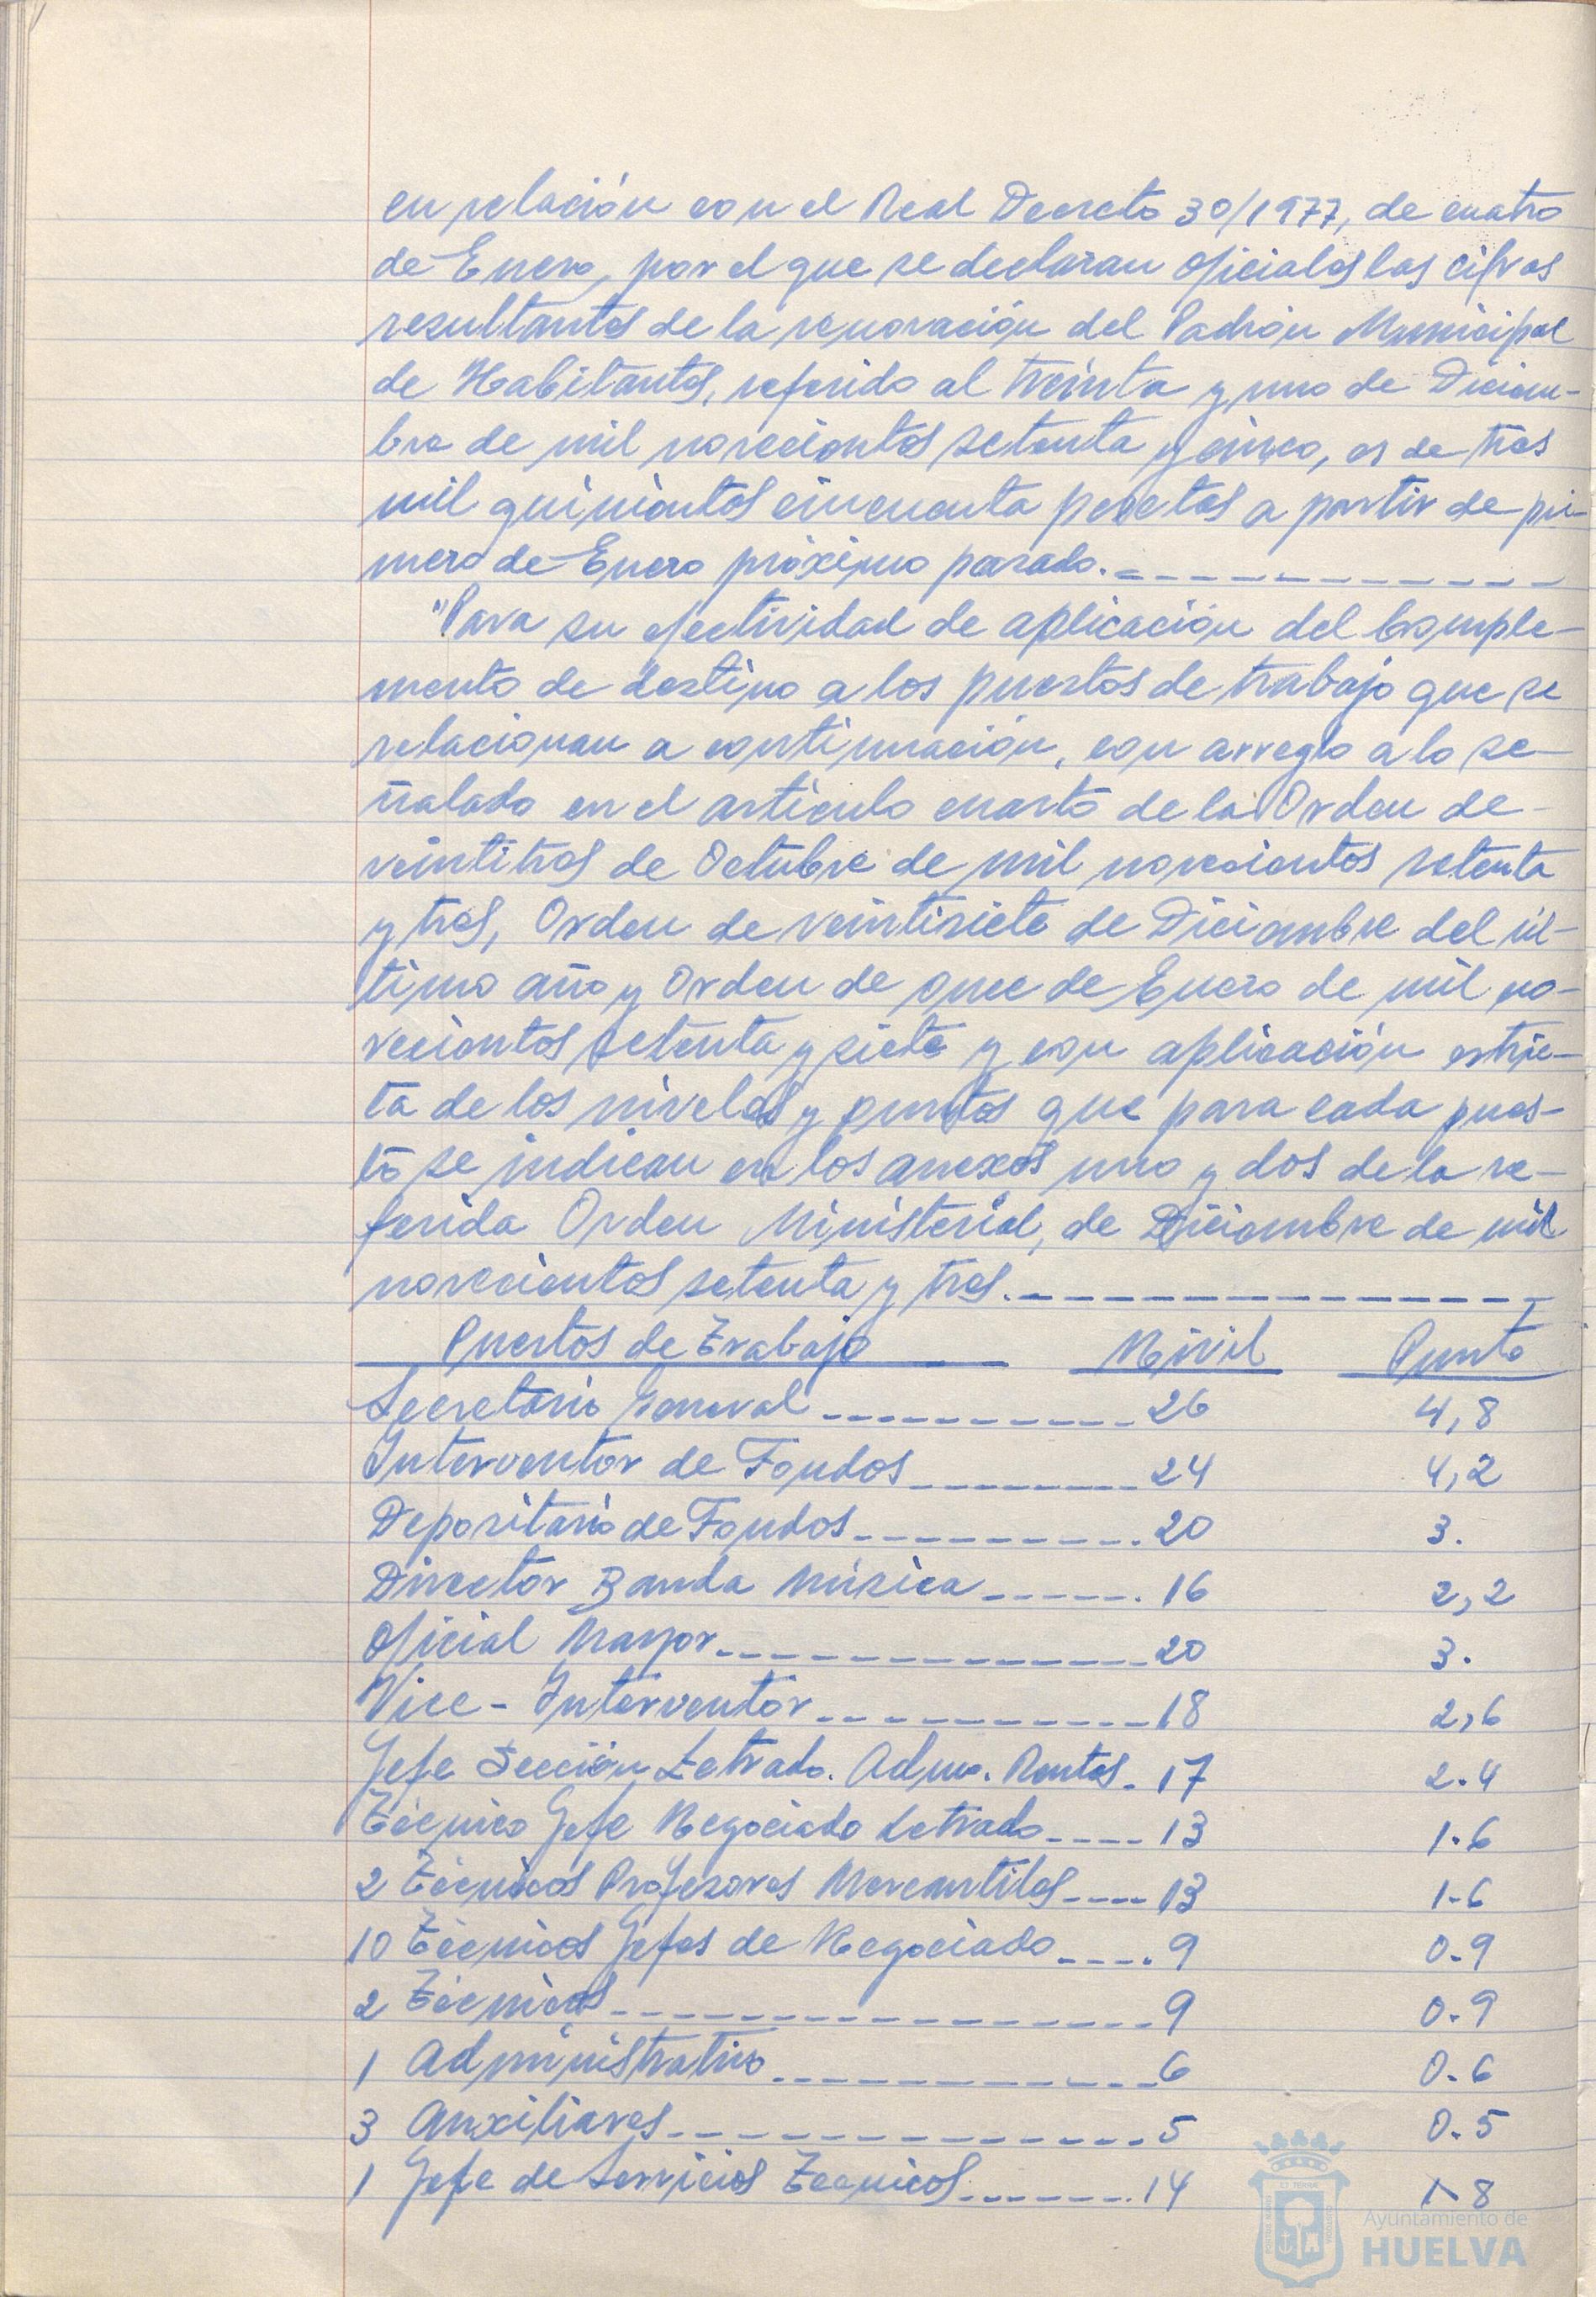 en relación con el Real Decreto 30/1977, de cuatro
de Enero, por el que se declaran oficiales las cifras
resultantes de la renovación del Padrón Municipal
de Habitantes, referido al treinta y uno de Diciem-
bre de mil novecientos setenta y cinco, es de tres
mil quinientos cincuenta pesetas a partir de pri-
mero de Enero próximo pasado.
"Para su efectividad de aplicación del Comple-
mento de destino a los puestos de trabajo que se
relacionan a continuación, con arreglo a lo se-
ñalado en el artículo cuarto de la Orden de
veintitres de Octubre de mil novecientos setenta
y tres, Orden de veintisiete de Diciembre del úl-
timo año y Orden de once de Enero de mil no-
vecientos setenta y siete y con aplicación estric-
ta de los niveles y puntos que para cada pues-
to se indican en los anexos uno y dos de la re-
ferida Orden Ministerial, de Diciembre de mil
novecientos setenta y tres.
Puestos de Trabajo Nivil Punto
Secretario General 26 4,8
Interventor de Fondos 24 4,2
Depositario de Fondos 20 3.
Director Banda Música 16 2,2
Oficial Mayor 20 3.
Vice-Interventor 18 2,6
Jefe Sección Letrado. Admo. Rentas. 17 2.4
Técnico Jefe Negociado Letrado 13 1.6
2 Técnicos Profesores Mercantiles 13 1-6
10 Técnicos Jefes de Negociado 9 0.9
2 Técnicos 9 0.9
1 Administrativo 6 0.6
3 Auxiliares 5 0.5
1 Jefe de Servicios Tecnicos 14 1-8
Ayuntamiento de
HUELVA